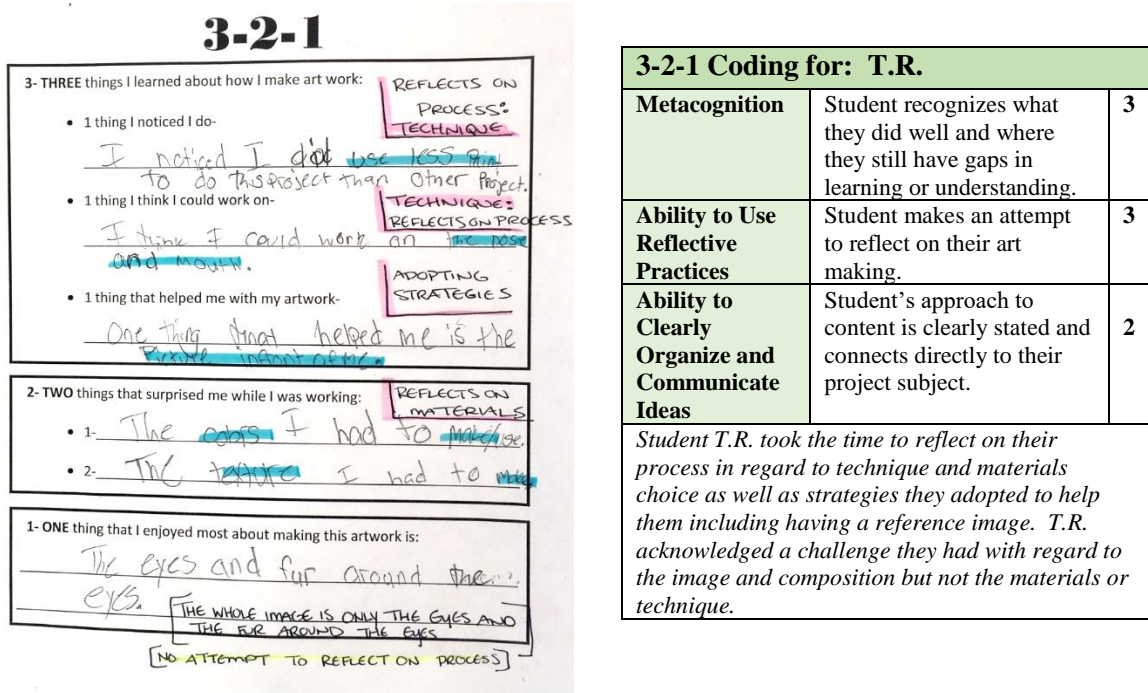 3-2-1
3- THREE things I learned about how I make art work:
REFLECTS ON
PROCESS:
TECHNIQUE
• 1 thing I noticed I do-
I noticed I did use less
to do this project than other project.
• 1 thing I think I could work on-
TECHNIQUE:
REFLECTS ON PROCESS
I think I could work on the
and mouth.
ADOPTING
STRATEGIES
• 1 thing that helped me with my artwork-
One thing that helped me is the
Picture infront of me.
2- TWO things that surprised me while I was working:
REFLECTS ON
MATERIALS
• 1- The colors I had to make/use.
• 2- The texture I had to make
1- ONE thing that I enjoyed most about making this artwork is:
The eyes and fur around the
eyes.
[THE WHOLE IMAGE IS ONLY THE EYES AND
THE FUR AROUND THE EYES
[NO ATTEMPT TO REFLECT ON PROCESS]
3-2-1 Coding for: T.R.
Metacognition Student recognizes what 3
they did well and where
they still have gaps in
learning or understanding.
Ability to Use Student makes an attempt 3
Reflective to reflect on their art
Practices making.
Ability to Student’s approach to
Clearly content is clearly stated and 2
Organize and connects directly to their
Communicate project subject.
Ideas
Student T.R. took the time to reflect on their
process in regard to technique and materials
choice as well as strategies they adopted to help
them including having a reference image. T.R.
acknowledged a challenge they had with regard to
the image and composition but not the materials or
technique.